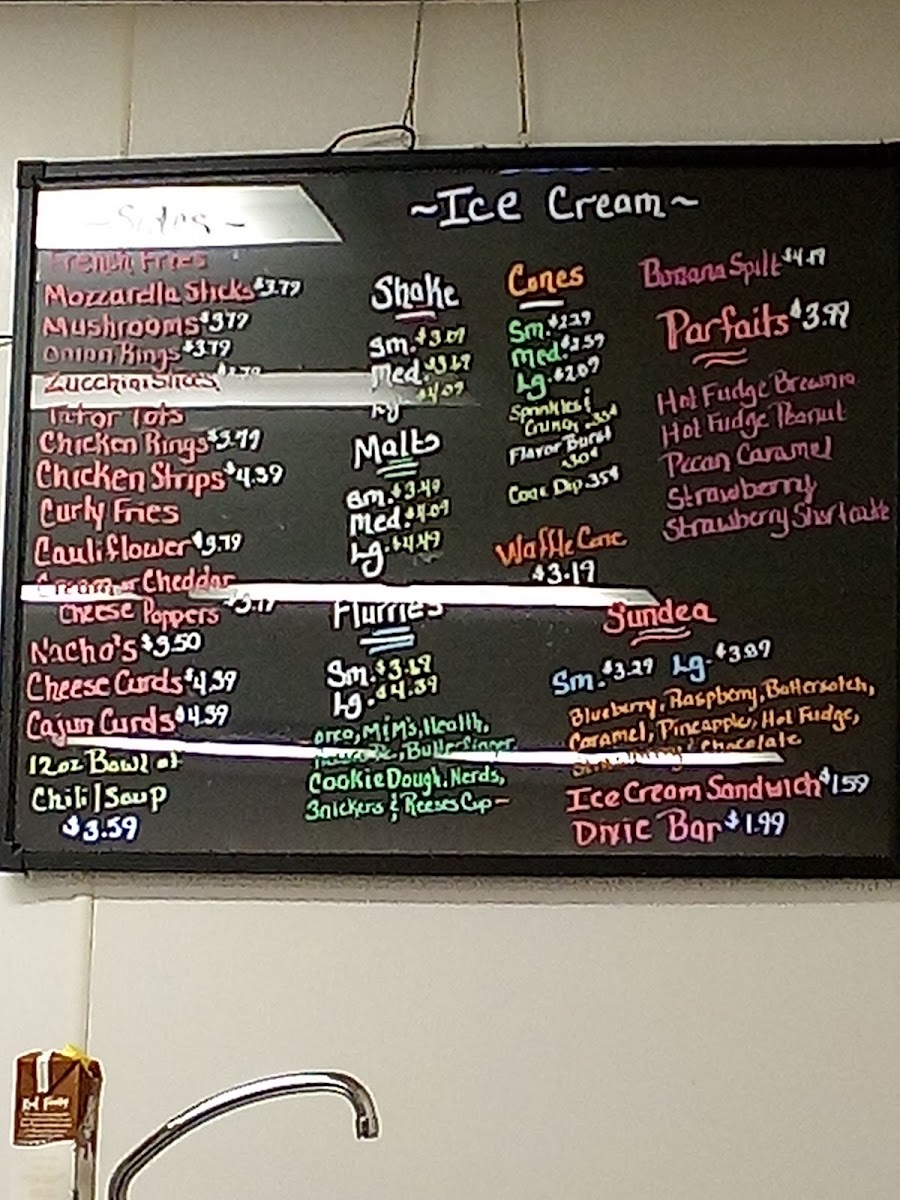 ~Sides~
French Fries
Mozzarella Sticks $3.79
Mushrooms $3.79
Onion Rings $3.79
Zucchini Slices $3.79
Tator Tots
Chicken Rings $3.79
Chicken Strips $4.39
Curly Fries
Cauliflower $3.79
Cream or Cheddar
Cheese Poppers
Nacho's $3.50
Cheese Curds $4.39
Cajun Curds $4.39
12oz Bowl of
Chili/Soup
$3.59
~Ice Cream~
Shake
Sm.
Med.
Lg. $4.09
Malts
Sm. $3.49
Med. $4.09
Lg. $4.49
Flurries
Sm.
Lg. $4.39
Oreo, M&M's, Health,
Butterfinger
Cookie Dough, Nerds,
Snickers & Reeses Cup
Cones
Sm. $2.29
Med. $2.59
Lg.
Sprinkles &
Crunch
Flavor Burst
.30¢
Cone Dip .35¢
Waffle Cone
$3.19
Banana Spilt
Parfaits $3.99
Hot Fudge Brownie
Hot Fudge Peanut
Pecan Caramel
Strawberry
Strawberry Shortcake
Sundea
Sm. $3.29 Lg. $3.89
Blueberry, Raspberry, Butterscotch,
Caramel, Pineapple, Hot Fudge,
Strawberry & Chocolate
Ice Cream Sandwich $1.59
Dixie Bar $1.99